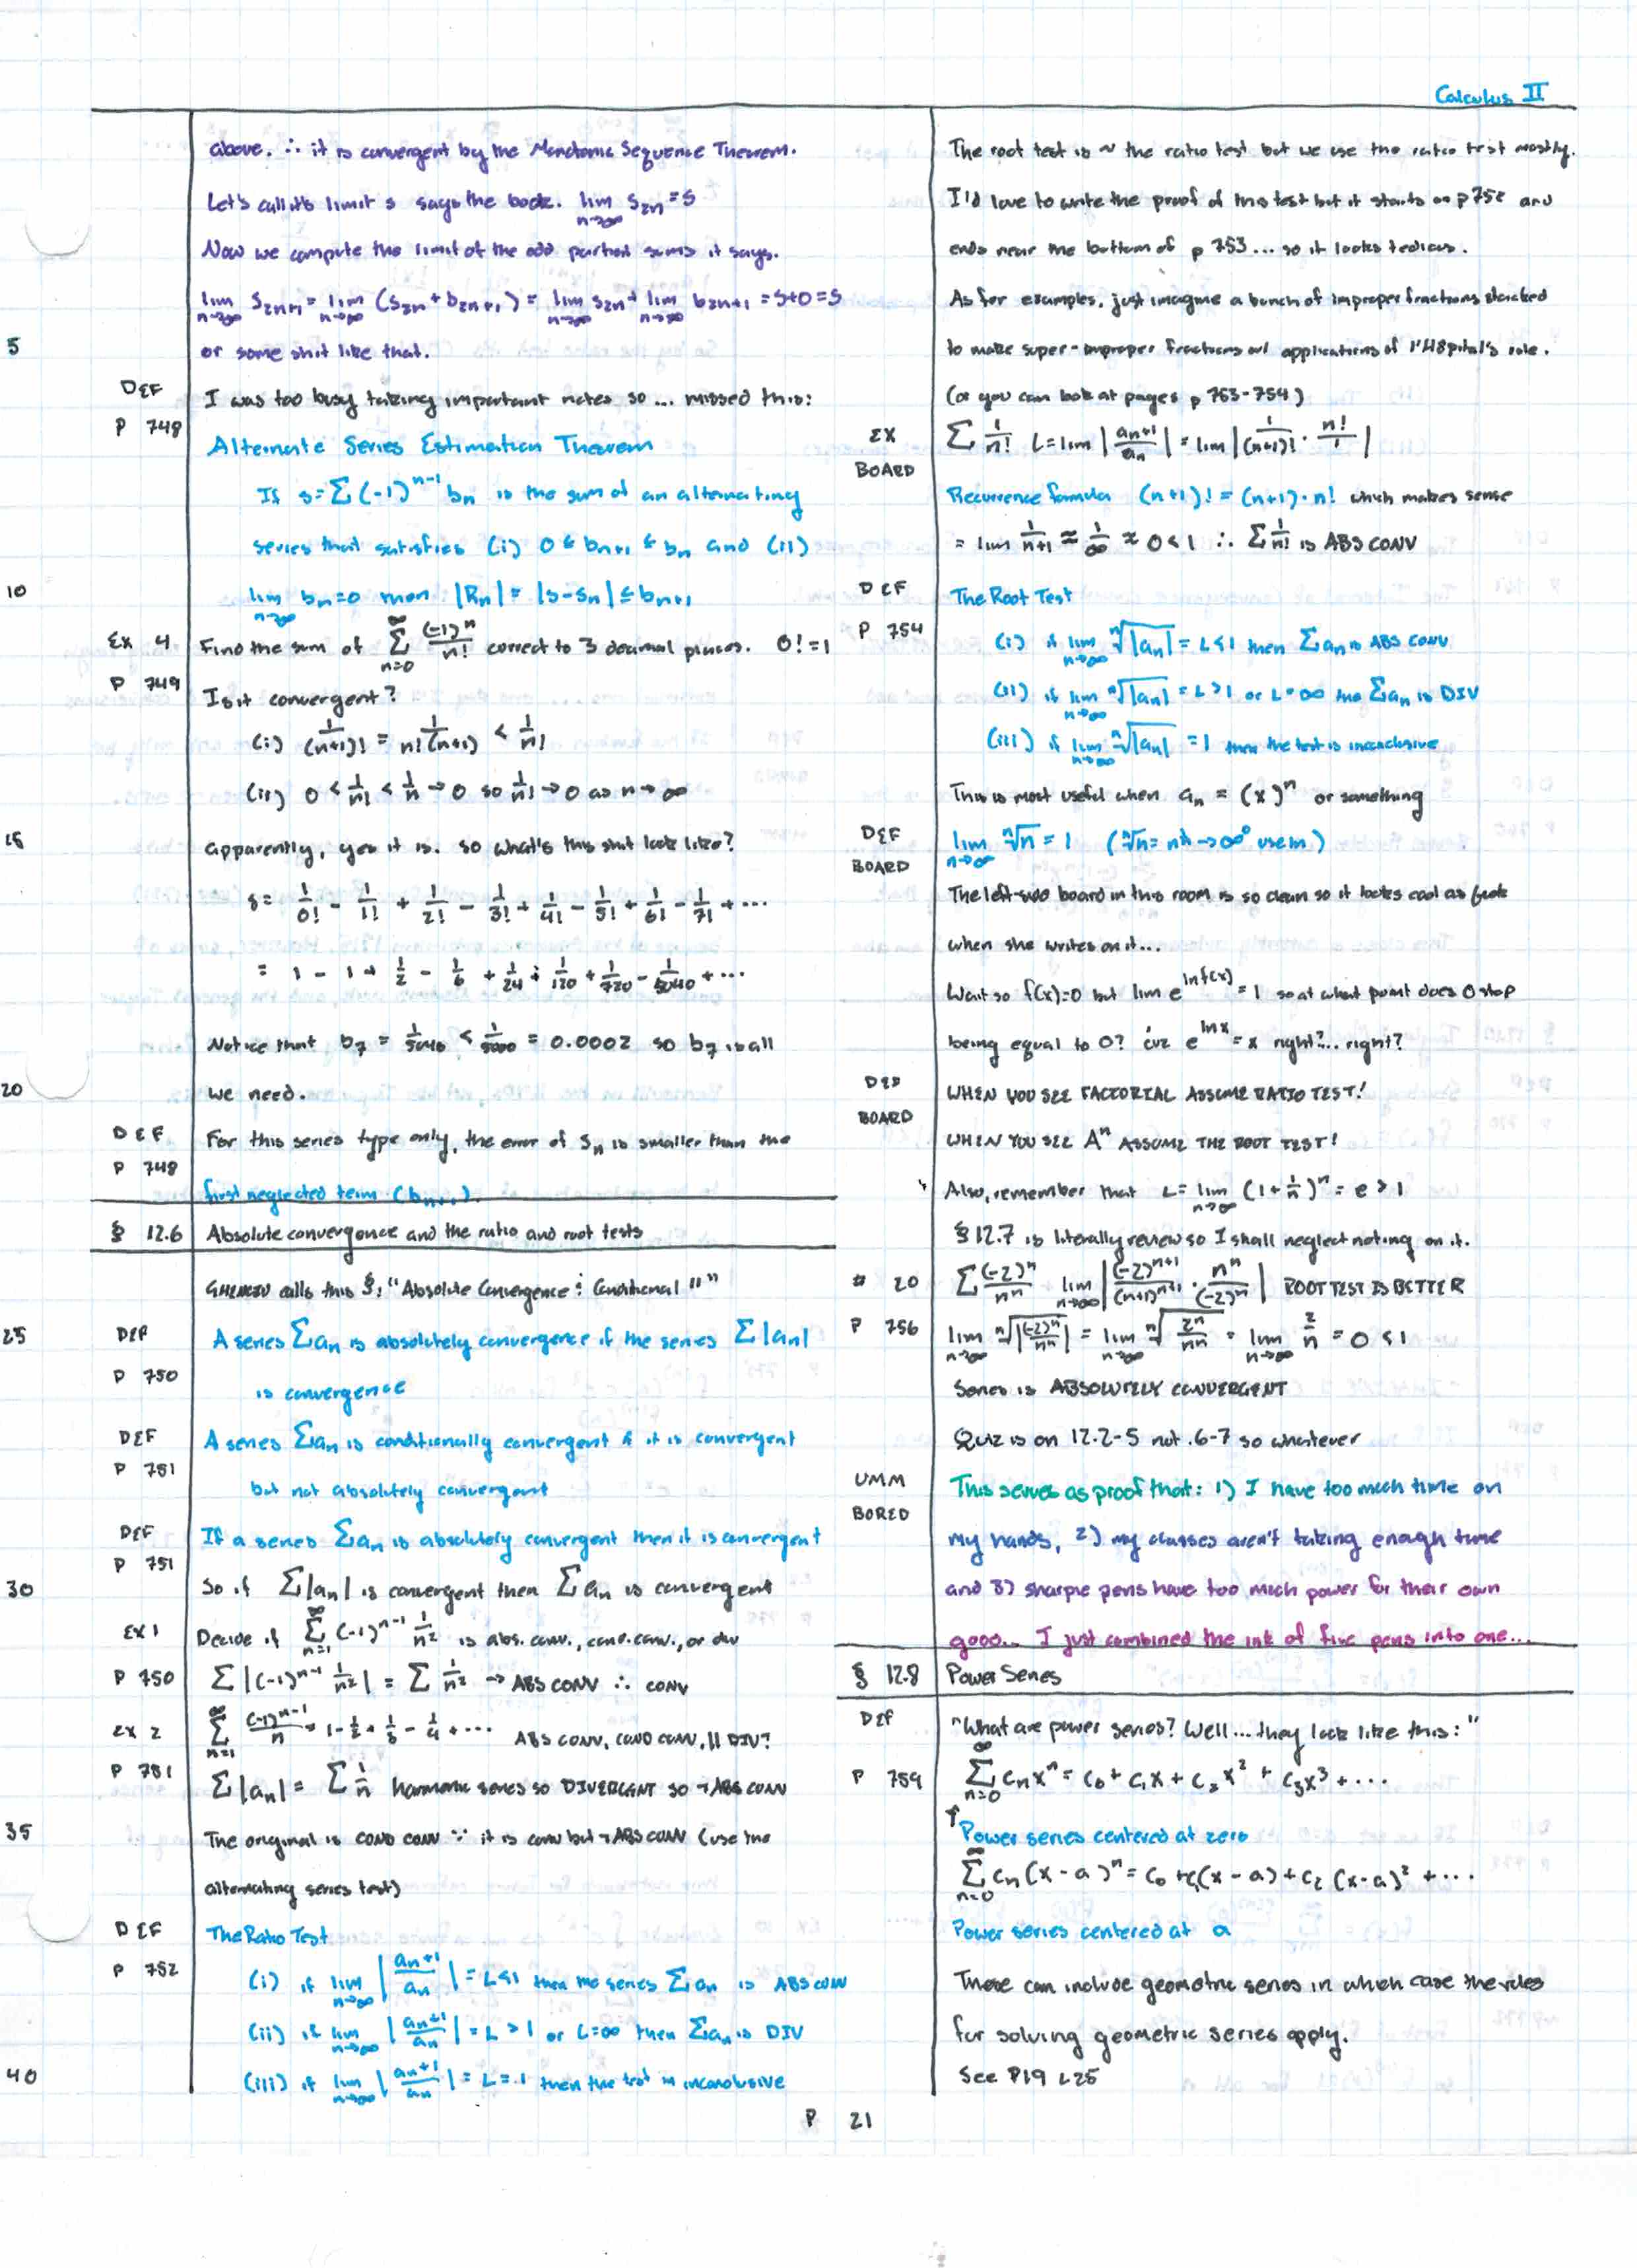 Calculus II
above. ∴ it is convergent by the Monotonic Sequence Theorem.
Let's call its limit s says the book. lim n→∞ s₂ₙ = s
Now we compute the limit of the odd partial sums it says.
lim n→∞ s₂ₙ₊₁ = lim n→∞ (s₂ₙ + b₂ₙ₊₁) = lim n→∞ s₂ₙ + lim n→∞ b₂ₙ₊₁ = s+0 = s
5 or some shit like that.
DEF I was too busy taking important notes so ... missed this:
P 748 Alternate Series Estimation Theorem
If s = Σ(-1)ⁿ⁻¹ bₙ is the sum of an alternating
series that satisfies (i) 0 ≤ bₙ₊₁ ≤ bₙ and (ii)
10 lim n→∞ bₙ = 0 then |Rₙ| = |s-sₙ| ≤ bₙ₊₁
EX 4 Find the sum of ∞ Σ n=0 (-1)ⁿ/n! correct to 3 decimal places. 0! = 1
P 749 Is it convergent?
(i) 1/(n+1)! = 1/n!(n+1) < 1/n!
(ii) 0 < 1/n! < 1/n → 0 so 1/n! → 0 as n → ∞
15 apparently, yes it is. so what's this shit look like?
s = 1/0! - 1/1! + 1/2! - 1/3! + 1/4! - 1/5! + 1/6! - 1/7! + ...
= 1 - 1 + 1/2 - 1/6 + 1/24 ÷ 1/120 + 1/720 - 1/5040 + ...
Notice that b₇ = 1/5040 < 1/5000 = 0.0002 so b₇ is all
20 we need.
DEF For this series type only, the error of Sₙ is smaller than the
P 748 first neglected term (bₙ₊₁).
§ 12.6 Absolute convergence and the ratio and root tests
calls this §: "Absolute Convergence ; Conditional " "
25 DEF A series Σaₙ is absolutely convergence if the series Σ|aₙ|
P 750 is convergence
DEF A series Σaₙ is conditionally convergent if it is convergent
P 751 but not absolutely convergent
DEF If a series Σaₙ is absolutely convergent then it is convergent
P 751
30 So if Σ|aₙ| is convergent then Σaₙ is convergent
EX 1 Decide if ∞ Σ n=1 (-1)ⁿ⁻¹ 1/n² is abs. conv., cond. conv., or div
P 750 Σ|(-1)ⁿ⁻¹ 1/n²| = Σ 1/n² → ABS CONV ∴ CONV
EX 2 ∞ Σ n=1 (-1)ⁿ⁻¹/n = 1 - 1/2 + 1/3 - 1/4 + ... ABS CONV, COND CONV, || DIV?
P 751 Σ|aₙ| = Σ 1/n harmonic series so DIVERGENT SO ¬ABS CONV
35 The original is COND CONV ∵ it is conv but ¬ABS CONV (use the
alternating series test)
DEF The Ratio Test
P 752 (i) if lim n→∞ |aₙ+1/aₙ| = L<1 then the series Σaₙ is ABS CONV
(ii) if lim n→∞ |aₙ+1/aₙ| = L > 1 or L=∞ then Σaₙ is DIV
40 (iii) if lim n→∞ |aₙ+1/aₙ| = L = 1 then the test is inconclusive
The root test is ~ the ratio test but we use the ratio test mostly.
I'd love to write the proof of this test but it starts on p752 and
ends near the bottom of p 753... so it looks tedious.
As for examples, just imagine a bunch of improper fractions stacked
to make super-improper fractions w/ applications of l'Hôpital's rule.
(or you can look at pages p 753-754)
EX Σ 1/n! L = lim |aₙ+1/aₙ| = lim |1/(n+1)! · n!/1|
BOARD
Recurrence formula (n+1)! = (n+1)·n! which makes sense
= lim 1/n+1 ≈ 1/∞ ≈ 0 < 1 ∴ Σ 1/n! is ABS CONV
DEF The Root Test
P 754 (i) if lim n→∞ ⁿ√|aₙ| = L<1 then Σaₙ is ABS CONV
(ii) if lim n→∞ ⁿ√|aₙ| = L > 1 or L = ∞ the Σaₙ is DIV
(iii) if lim n→∞ ⁿ√|aₙ| = 1 then the test is inconclusive
This is most useful when aₙ = (x)ⁿ or something
DEF lim n→∞ ⁿ√n = 1 (ⁿ√n = n^1/n → ∞⁰ use ln)
BOARD
The left-side board in this room is so clean so it looks cool as fuck
when she writes on it...
Wait so f(x)=0 but lim e^ln f(x) = 1 so at what point does 0 stop
being equal to 0? cuz e^ln x = x right?... right?
DEF WHEN YOU SEE FACTORIAL ASSUME RATIO TEST!
BOARD WHEN YOU SEE Aⁿ ASSUME THE ROOT TEST!
Also, remember that L = lim n→∞ (1+1/n)ⁿ = e > 1
§ 12.7 is literally review so I shall neglect noting on it.
# 20 Σ(-2)ⁿ/nⁿ lim n→∞ |(-2)ⁿ⁺¹/(n+1)ⁿ⁺¹ · nⁿ/(-2)ⁿ| ROOT TEST IS BETTER
P 756 lim n→∞ ⁿ√|(-2)ⁿ/nⁿ| = lim n→∞ ⁿ√2ⁿ/nⁿ = lim n→∞ 2/n = 0 < 1
Series is ABSOLUTELY CONVERGENT
Quiz is on 12.2-5 not .6-7 so whatever
UMM This serves as proof that: 1) I have too much time on
BORED my hands, 2) my classes aren't taking enough time
and 3) sharpie pens have too much power for their own
good... I just combined the ink of five pens into one...
§ 12.8 Power Series
DEF "What are power series? Well... they look like this:"
P 759 ∞ Σ n=0 cₙxⁿ = c₀ + c₁x + c₂x² + c₃x³ + ...
↑ Power series centered at zero
∞ Σ n=0 cₙ(x-a)ⁿ = c₀ + c₁(x-a) + c₂(x-a)² + ...
Power series centered at a
These can include geometric series in which case the rules
for solving geometric series apply.
See P19 L25
P 21